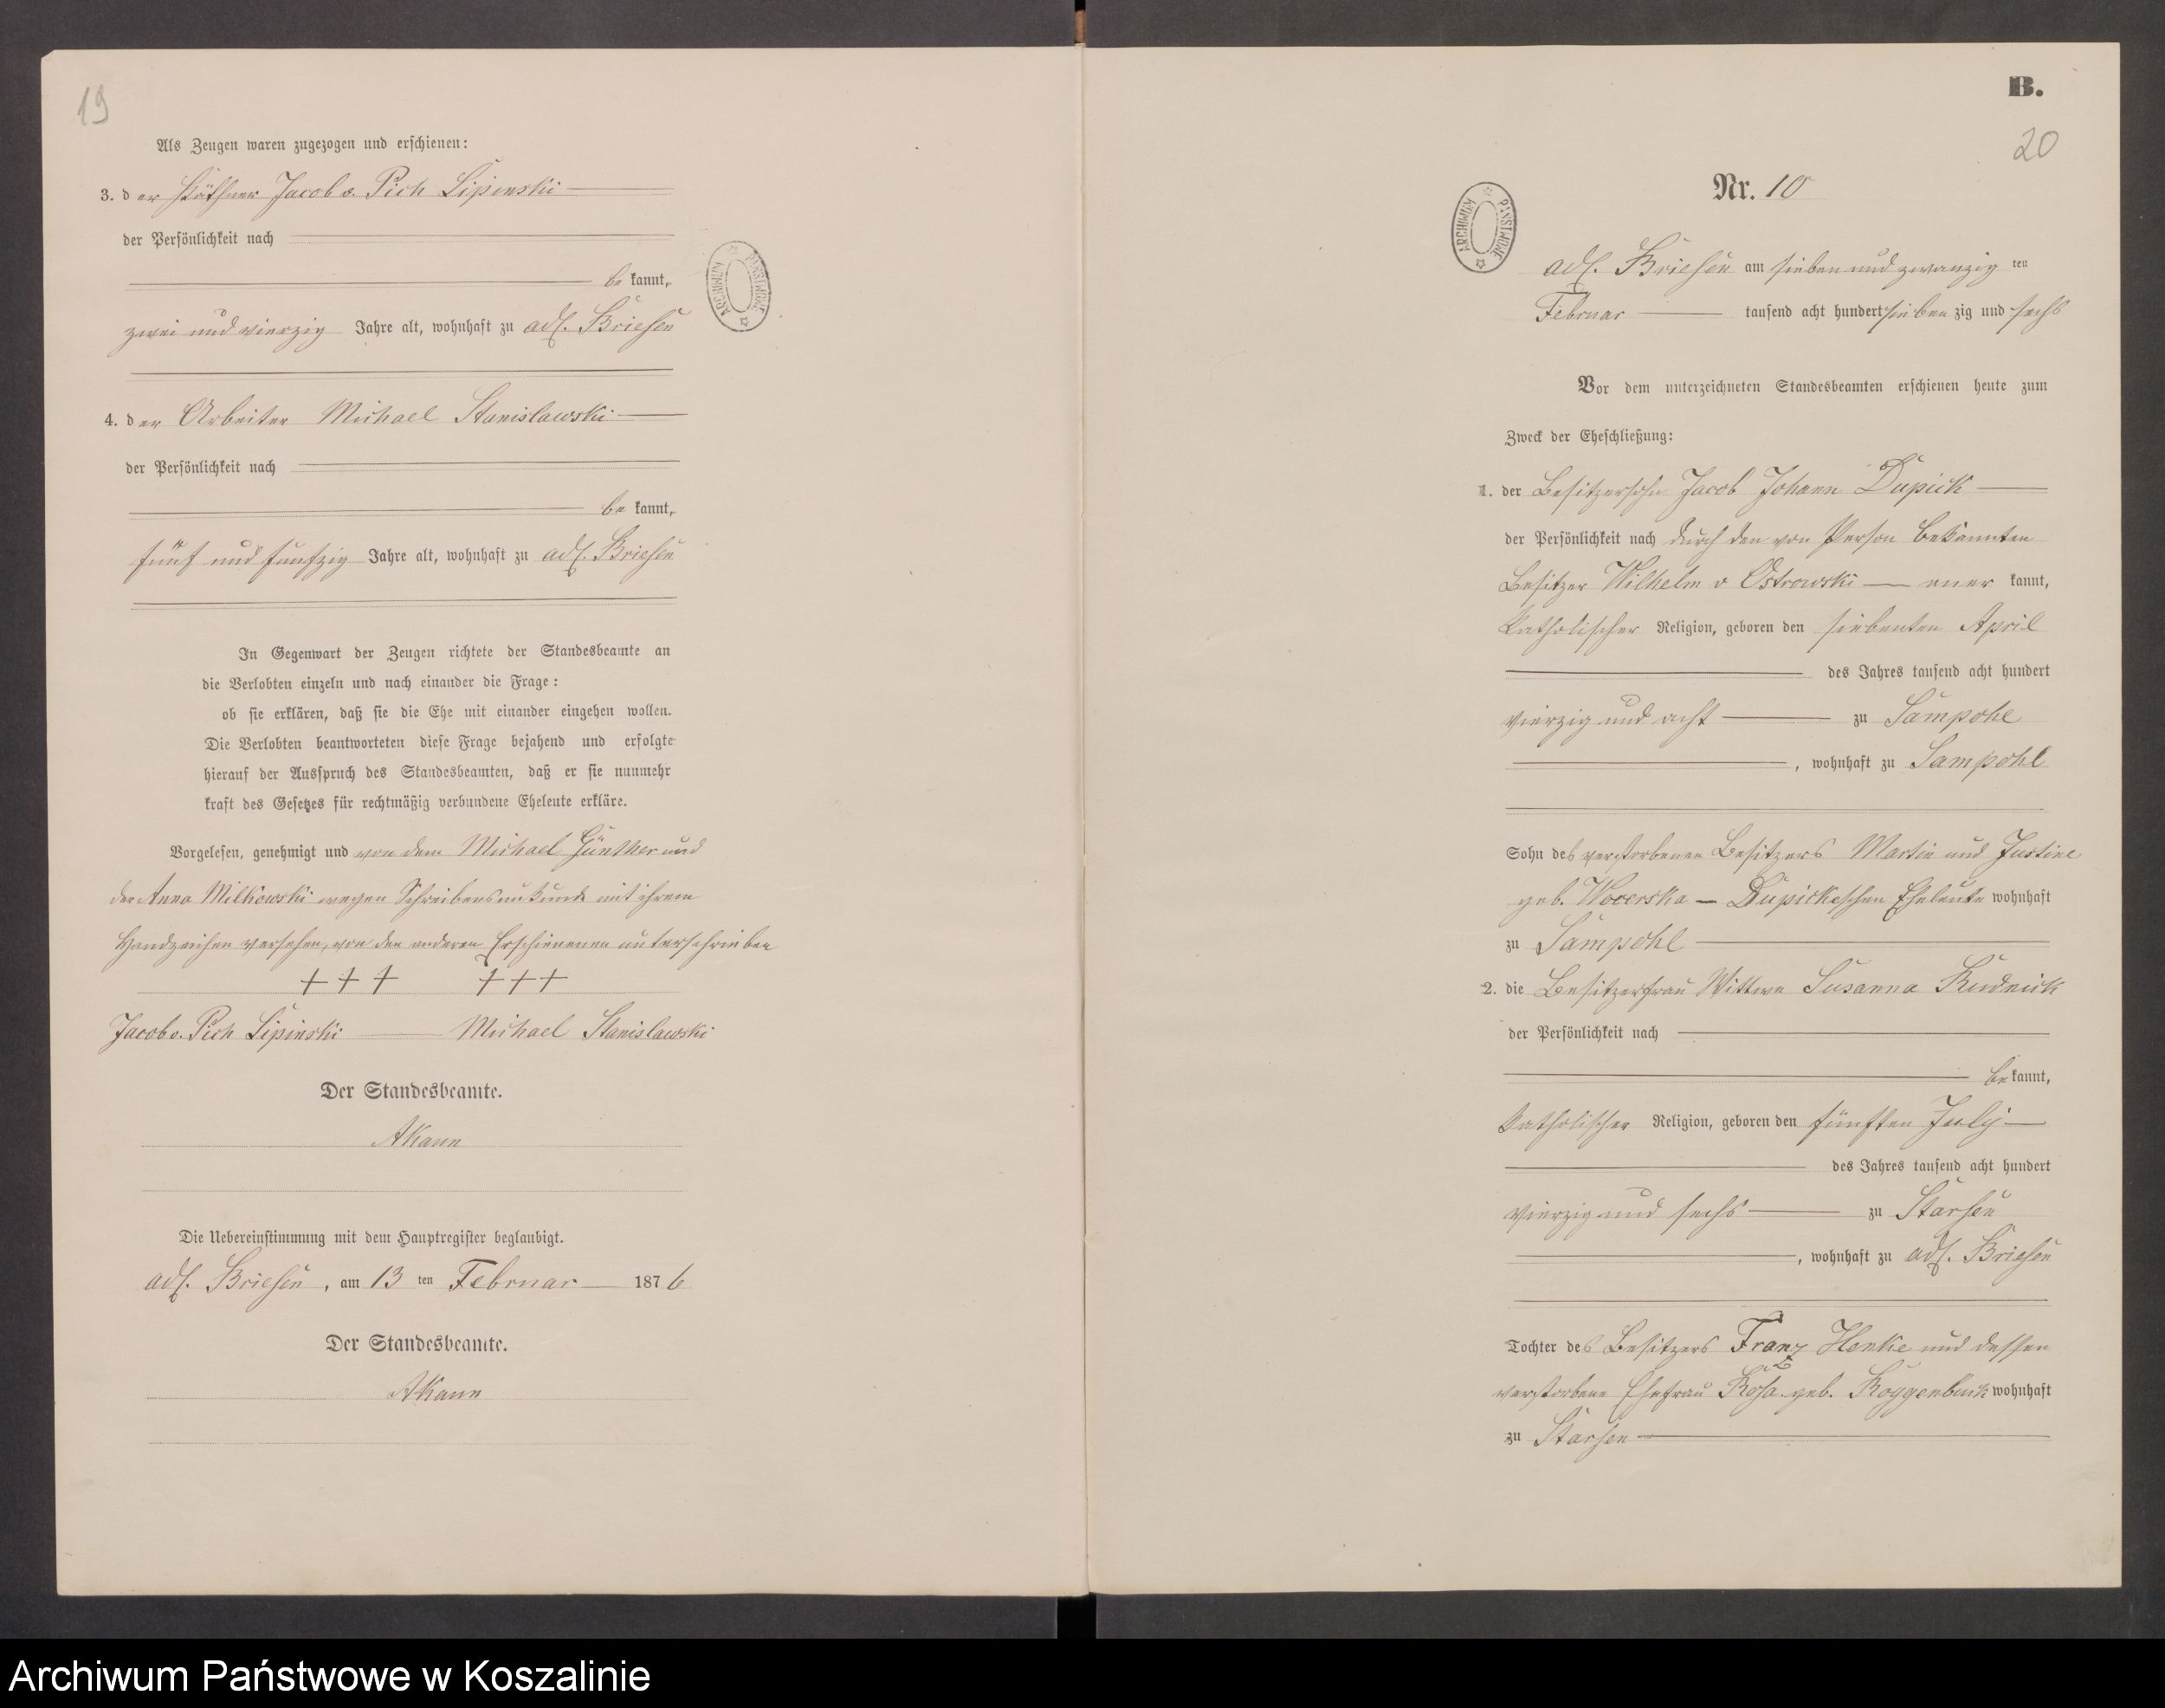 19
Als Zeugen waren zugezogen und erschienen:
3. der Käthner Jacob v. Pich Lipinski
der Persönlichkeit nach
bekannt,
zwei und vierzig Jahre alt, wohnhaft zu adl. Briesen
4. der Arbeiter Michael Stanislawski
der Persönlichkeit nach
bekannt,
fünf und funfzig Jahre alt, wohnhaft zu adl. Briesen
In Gegenwart der Zeugen richtete der Standesbeamte an
die Verlobten einzeln und nach einander die Frage:
ob sie erklären, daß sie die Ehe mit einander eingehen wollen.
Die Verlobten beantworteten diese Frage bejahend und erfolgte
hierauf der Ausspruch des Standesbeamten, daß er sie nunmehr
kraft des Gesetzes für rechtmäßig verbundene Eheleute erkläre.
Vorgelesen, genehmigt und von dem Michael Günther und
der Anna Milkowski wegen Schreibensunkunde mit ihrem
Handzeichen versehen, von den anderen Erschienenen unterschrieben
+++ +++
Jacob v. Pich Lipinski Michael Stanislawski
Der Standesbeamte.
AKann
Die Uebereinstimmung mit dem Hauptregister beglaubigt.
adl. Briesen, am 13 ten Februar 1876
Der Standesbeamte.
AKann
ARCHIWUM PAŃSTWOWE
B.
20
Nr. 10
ARCHIWUM PAŃSTWOWE
adl. Briesen am sieben und zwanzig ten
Februar tausend acht hundert sieben zig und sechs
Vor dem unterzeichneten Standesbeamten erschienen heute zum
Zweck der Eheschließung:
1. der Besitzersohn Jacob Johann Dupick
der Persönlichkeit nach durch den von Person bekannten
Besitzer Wilhelm v Ostrowski anerkannt,
katholischer Religion, geboren den siebenten April
des Jahres tausend acht hundert
vierzig und acht zu Sampohl
, wohnhaft zu Sampohl
Sohn des verstorbenen Besitzers Martin und Justine
geb. – Dupickeschen Eheleute wohnhaft
zu Sampohl
2. die Besitzerfrau Wittwe Susanna Rudnick
der Persönlichkeit nach
bekannt,
katholischer Religion, geboren den fünften July
des Jahres tausend acht hundert
vierzig und sechs zu Starsen
, wohnhaft zu adl. Briesen
Tochter des Besitzers Franz Henke und dessen
verstorbene Ehefrau Rosa geb. Roggenbuck wohnhaft
zu Starsen
Archiwum Państwowe w Koszalinie